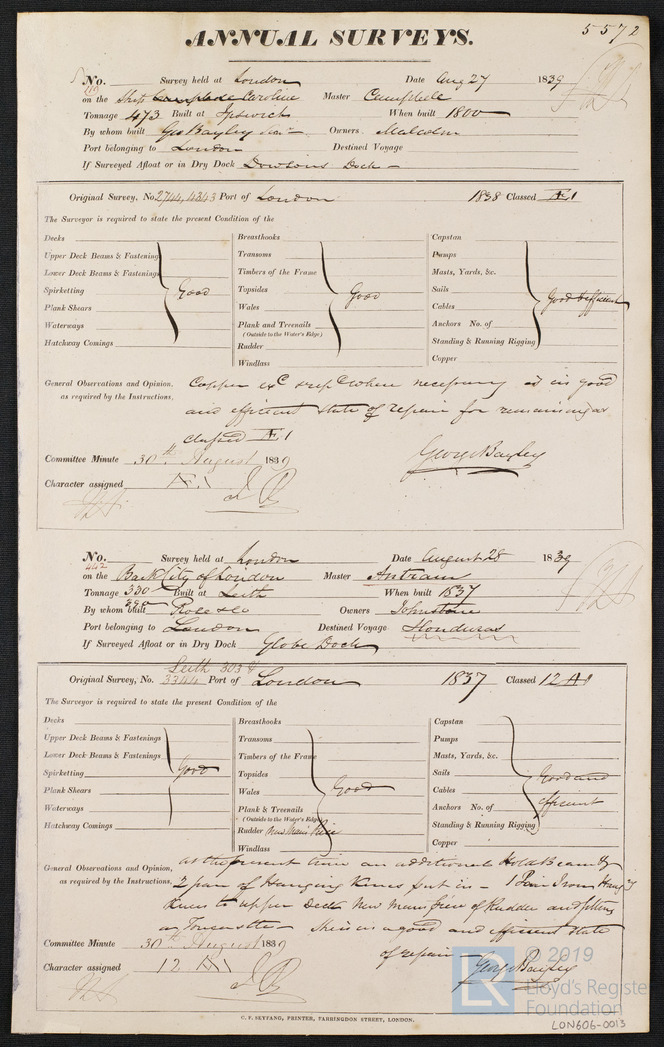 5572
ANNUAL SURVEYS.
No. Survey held at London Date Aug 27 1839
on the Ship Caroline Master Campbell
Tonnage 473 Built at Ipswich When built 1800
By whom built Geo Bayley Senr Owners Malcolm
Port belonging to London Destined Voyage
If Surveyed Afloat or in Dry Dock Dowsons Dock
Original Survey, No. 2744, 4343 Port of London 1838 Classed Æ1
The Surveyor is required to state the present Condition of the
Decks
Upper Deck Beams & Fastening
Lower Deck Beams & Fastenings
Spirketting Good
Plank Shears
Waterways
Hatchway Comings
Breasthooks
Transoms
Timbers of the Frame
Topsides Good
Wales
Plank and Treenails
(Outside to the Water's Edge)
Rudder
Windlass
Capstan
Pumps
Masts, Yards, &c.
Sails Good & efficient
Cables
Anchors No. of
Standing & Running Rigging
Copper
General Observations and Opinion, Copper exd & repd where necessary is in good
as required by the Instructions. and efficient state of repair for remaining as
classed Æ1
Committee Minute 30th August 1839 George Bayley
Character assigned Æ1
No. Survey held at London Date August 28 1839
442
on the Bark City of London Master Antram
Tonnage 330 Built at Leith When built 1837
By whom built Rose & Co Owners Johnstone
Port belonging to London Destined Voyage Honduras
If Surveyed Afloat or in Dry Dock Globe Dock
Leith 303 &
Original Survey, No. 3344 Port of London 1837 Classed 12 A1
The Surveyor is required to state the present Condition of the
Decks
Upper Deck Beams & Fastenings
Lower Deck Beams & Fastenings
Spirketting Good
Plank Shears
Waterways
Hatchway Comings
Breasthooks
Transoms
Timbers of the Frame
Topsides
Wales Good
Plank & Treenails
(Outside to the Water's Edge)
Rudder New Main Piece
Windlass
Capstan
Pumps
Masts, Yards, &c.
Sails Good and
Cables efficient
Anchors No. of
Standing & Running Rigging
Copper
General Observations and Opinion, at the present time an additional Hold Beam &
as required by the Instructions. 2 pair of Hanging Knees put in - 1 Pair Iron Hangg
Knees to upper Deck New Main piece of Rudder and
She is in a good and efficient state
of repair George Bayley
Committee Minute 30th August 1839
Character assigned 12 A1
C. F. SEYFANG, PRINTER, FARRINGDON STREET, LONDON.
LR
© 2019
Lloyd's Register
Foundation
LON606-0013